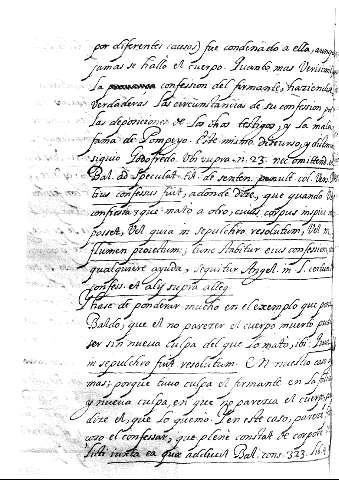 por diferentes causas) fué condenado a ella, aunque
jamas se halló el cuerpo. Quanto mas Verisimil
la confession del firmante, haziendo
verdaderas las circunstancias de su confession por
las deposiciones de los dhos testigos, y la mala
fama de Pompeyo. Este mismo discurso, y dicta
siguio Jodofredo. Ubi supra n. 23. nec omittend
Bal. ad Speculat. tit. de senten. penult. col. Ver.
tius confessus fuit, adonde dize, que quando
confiessa que mato a otro, cuius corpus inspici n
posset, Vel quia in sepulchro resolutum, Vel in
flumen proiectum; tunc stabitur eius confession
qualquiere ayuda, sequitur Angel. in l.
confess. et alij supra alleg.
Hase de ponderar mucho en el exemplo que pone
Baldo, que el no parezer el cuerpo muerto pue
ser sin nueva culpa del que lo mató, ibi:
in sepulchro fuit resolutum. En nuestro caso
mas; porque tuvo culpa el firmante en la
y nueva culpa, en que no parezca el cuerpo,
dize el, que lo quemó. Y en este caso, pareze
oso el confessar, que plene constat de corpore
licti iuxta ea quæ addicit Bal. cons. 323. lib. 4